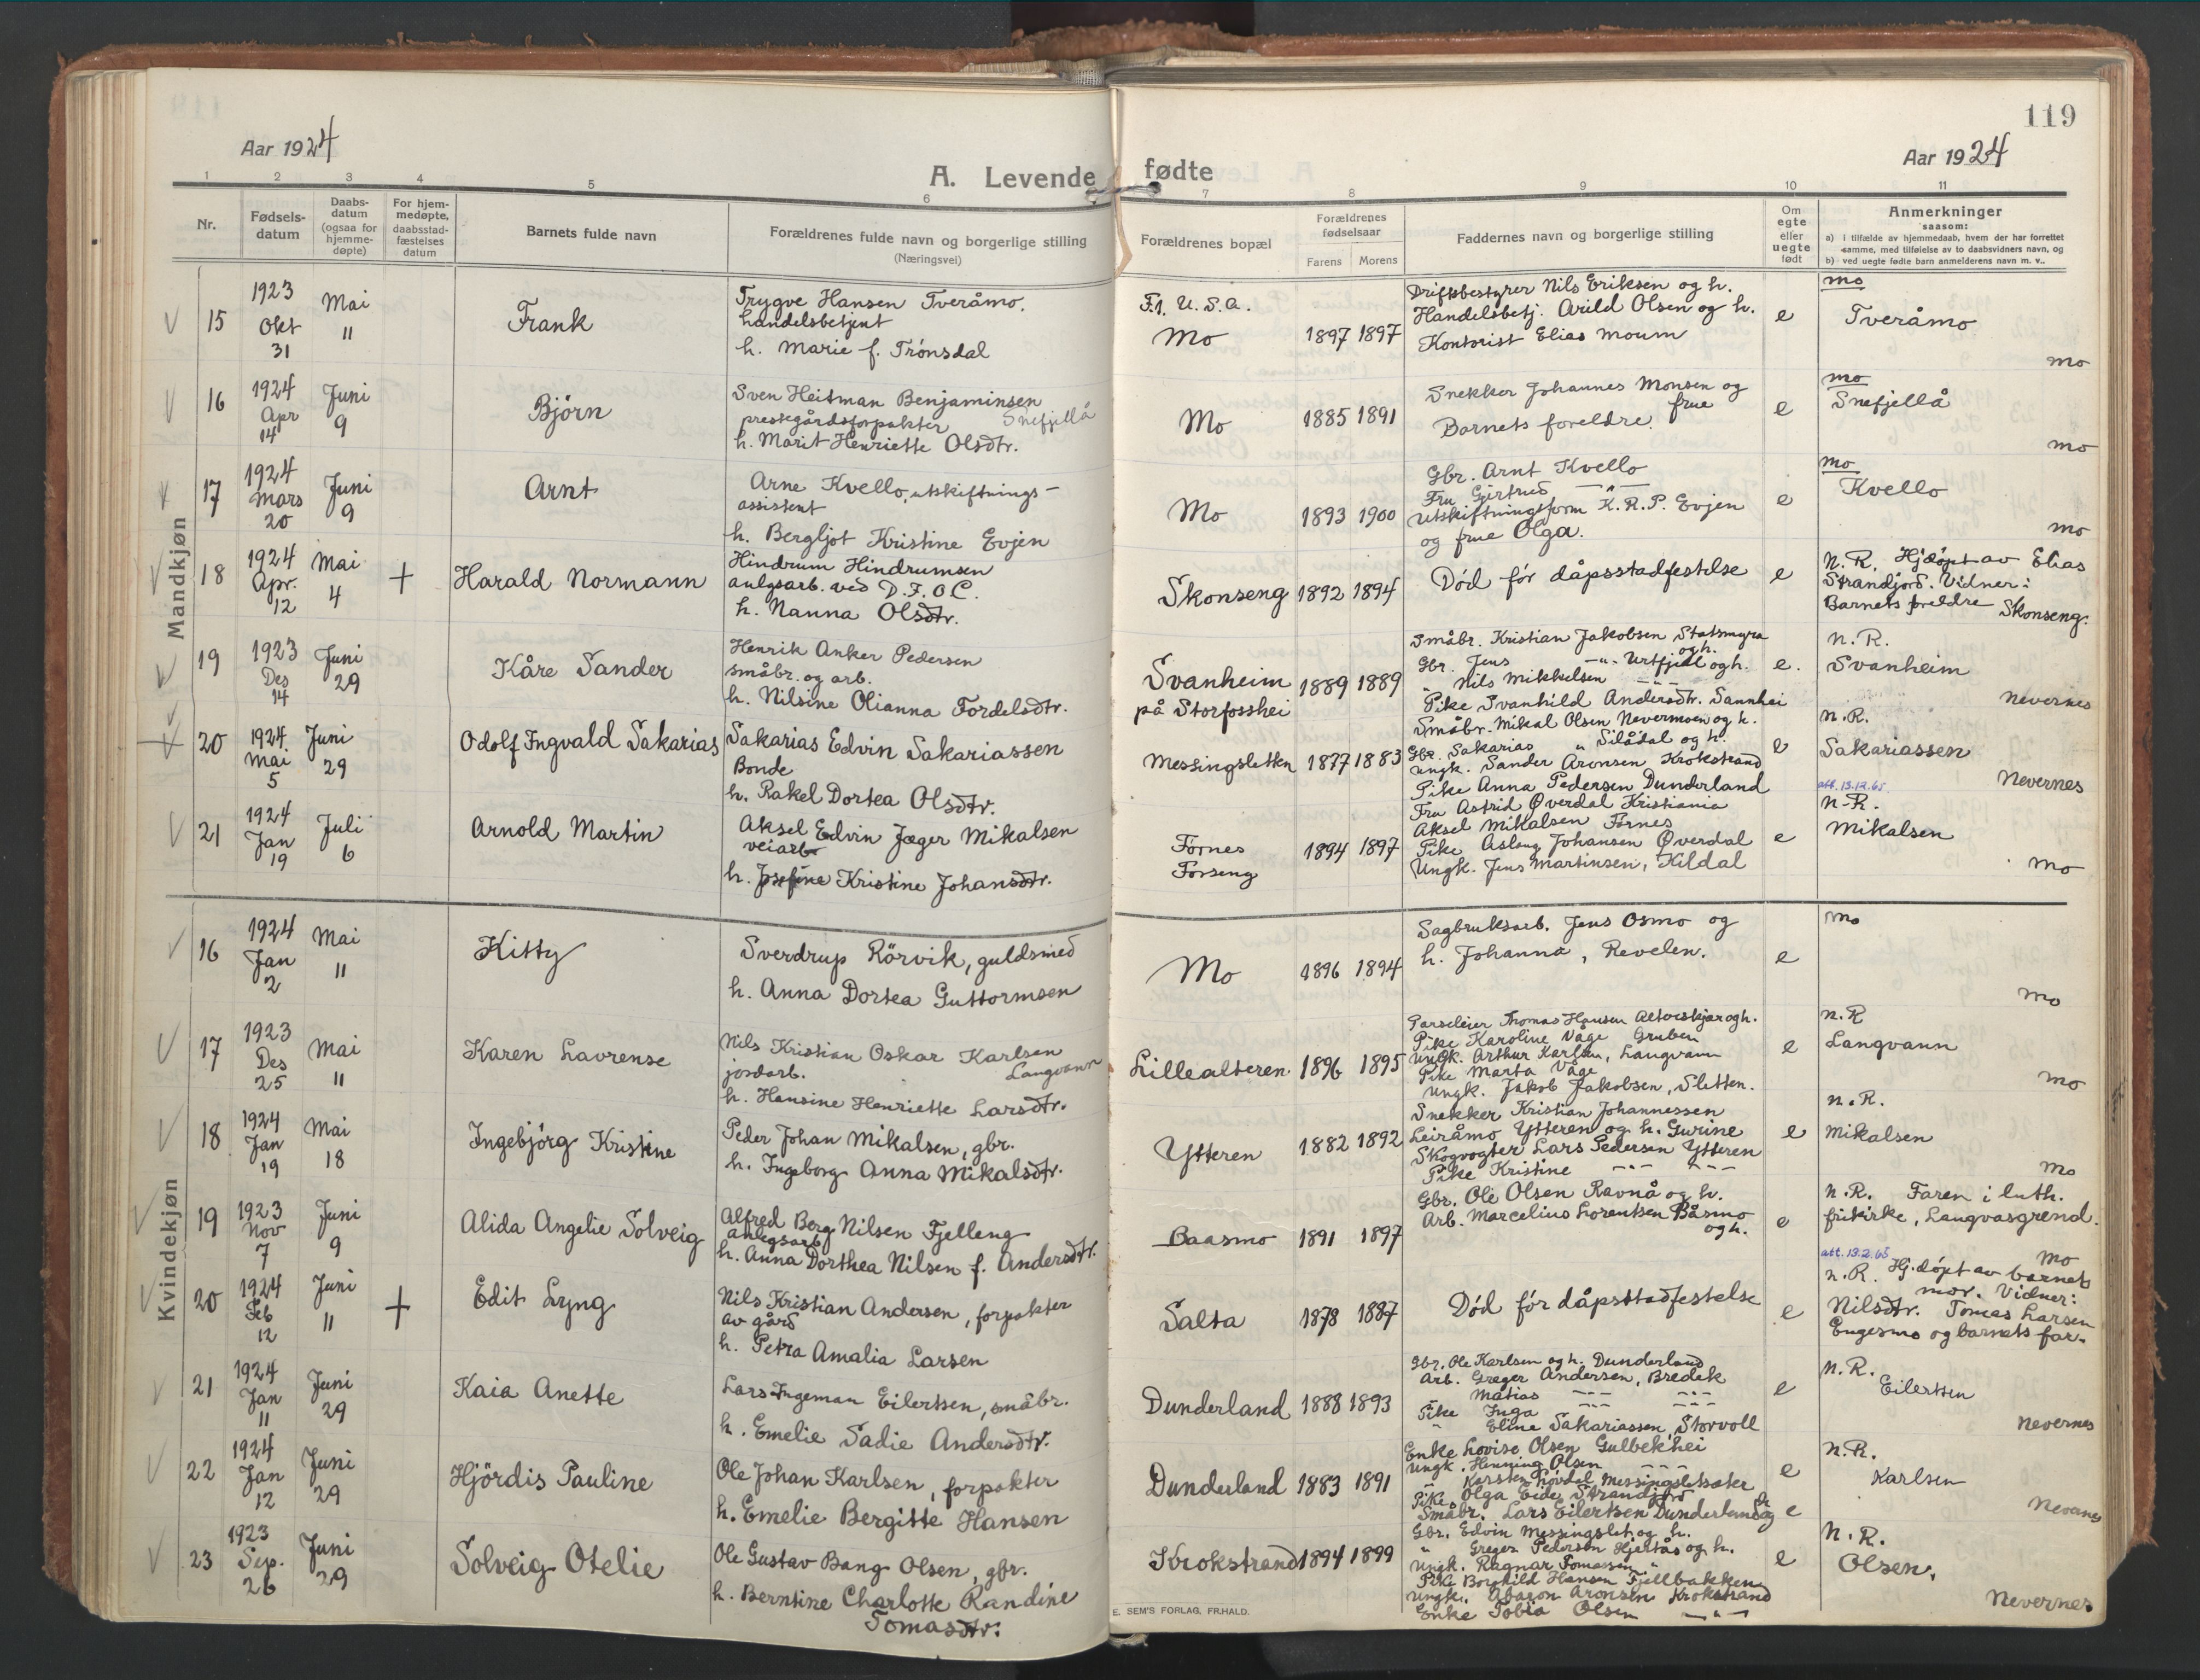 119
Aar 1924
Aar 1924
A. Levende fødte
1 2 3 4 5 6 7 8 9 10 11
Nr.
Fødsels-
datum
Daabs-
datum
(ogsaa for
hjemme-
døpte)
For hjem-
medøpte,
daabsstad-
fæstelses
datum
Barnets fulde navn
Forældrenes fulde navn og borgerlige stilling
(Næringsvei)
Forældrenes bopæl
Forældrenes
fødselsaar
Farens Morens
Faddernes navn og borgerlige stilling
Om
egte
eller
uegte
født
Anmerkninger
saasom:
a) i tilfælde av hjemmedaab, hvem der har forrettet
samme, med tilføielse av to daabsvidners navn, og
b) ved uegte fødte barn anmelderens navn m. v..
Mandkjøn
15
1923
Okt
31
Mai
11
Frank
Trygve Hansen Tveråmo,
handelsbetjent
h. Marie f. Trönsdal
F.1. U.S.A.
Mo
1897 1897
Driftsbestyrer Nils Eriksen og h.
Handelsbetj. Arild Olsen og h.
Kontorist Elias Moum
e
Mo
Tveråmo
Mo
16
1924
Apr
14
Juni
9
Björn
Sven Heitman Benjaminsen
prestegårdsforpakter Snefjellå
h. Marit Henriette Olsdtr.
Mo
1885 1891
Snekker Johannes Monsen og
frue
Barnets foreldre.
e
Mo
Snefjellå
Mo
17
1924
Mars
20
Juni
9
Arnt
Arne Kvello, utskiftnings-
assistent
h. Bergljot Kristine Evjen
Mo
1893 1900
Gbr. Arnt Kvello
Fru Gjertrud -"-
Utskiftningsform K.R.P. Evjen
og frue Olga.
e
Mo
Kvello
Mo
18
1924
Apr.
12
Mai
4
+
Harald Normann
Hindrum Hindrumsen
anlgsarb. ved D.F.O C.
h. Nanna Olsdtr.
Skonseng
1892 1894
Död för dåpsstadfestelse
e
N.R. Hjdöpt av Elias
Strandjord. Vidner:
Barnets foreldre Skonseng.
19
1923
Des
14
Juni
29
Kåre Sander
Henrik Anker Pedersen
småbr. og arb.
h. Nilsine Olianna Fordelsdtr.
Svanheim
på Storfosshei
1889 1889
Småbr. Kristian Jakobsen Statsmyra
og h.
Gbr. Jens -"- Urtfjell og h.
" Nils Mikkelsen - " -
Pike Svanhild Andersdtr. Sannhei
e.
N.R.
Svanheim
Nevernes
20
1924
Mai
5
Juni
29
Odolf Ingvald Sakarias
Sakarias Edvin Sakariassen
Bonde
h. Rakel Dortea Olsdtr.
Messingsletten
1877 1883
Småbr. Mikal Olsen Nevermoen og h.
Gbr. Sakarias " Silådal og h.
Ungk. Sander Aronsen Krokstrand
Pike Anna Pedersen Dunderland
e
N.R.
Sakariassen
Nevernes
21
1924
Jan
19
Juli
6
Arnold Martin
Aksel Edvin Jæger Mikalsen
veiarb
h. Josefine Kristine Johansdtr.
Förnes
Forseng
1894 1897
Fru Astrid Øverdal Kristiania
Aksel Mikalsen Förnes
Pike Aslaug Johansen Øverdal
Ungk. Jens Martinsen, Kildal
e
att. 13.12.65.
N.R.
Mikalsen
Mo
Kvindekjøn
16
1924
Jan
2
Mai
11
Kitty
Sverdrup Rörvik, guldsmed
h. Anna Dortea Guttormsen
Mo
1896 1894
Sagbruksarb. Jens Osmo og
h. Johanna, Revelen.
e
Mo
Mo
17
1923
Des
25
Mai
11
Karen Lavrense
Nils Kristian Oskar Karlsen
jordarb. Langvann
h. Hansine Henriette Larsdtr.
Lillealteren
1896 1895
Parseleier Thomas Hansen Alterskjær og h.
Pike Karoline Våge Gruben
Ungk. Arthur Karlsen, Langvann
Pike Marta Våge
Ungk. Jakob Jakobsen, Sletten.
e
N.R
Langvann
Mo
18
1924
Jan
19
Mai
18
Ingebjörg Kristine
Peder Johan Mikalsen, gbr.
h. Ingeborg Anna Mikalsdtr.
Ytteren
1882 1892
Snekker Kristian Johannessen
Leiråmo Ytteren og h. Gurine
Skogvogter Lars Pedersen Ytteren
Pike Kristine -"- -"-
e
N.R.
Mikalsen
Mo
19
1923
Nov
7
Juni
9
Alida Angelie Solveig
Alfred Berg Nilsen Fjelleng
anlegsarb
h. Anna Dorthea Nilsen f. Andersdtr.
Baasmo
1891 1897
Gbr. Ole Olsen Ravnå og h.
Arb. Marcelius Lorentsen Båsmo
og h.
e
N.R. Faren i luth.
frikirke, Langvasgrend.
Mo
20
1924
Feb
12
Juni
11
+
Edit Lyng
Nils Kristian Andersen, forpakter
av gård
h. Petra Amalia Larsen
Salta
1878 1887
Död för dåpsstadfestelse
e
att. 13.2.65
N.R. Hj.döpt av barnets
mor. Vidner:
Nilsdtr. Tomas Larsen
Engesmo og barnets far.
21
1924
Jan
11
Juni
29
Kaia Anette
Lars Ingeman Eilertsen, småbr.
h. Emelie Sadie Andersdtr.
Dunderland
1888 1893
Gbr. Ole Karlsen og h. Dunderland
Arb. Greger Andersen, Bredek
" Matias -"- -"-
Pike Inga -"- -"-
" Eline Sakariassen, Storvoll
e
N.R.
Eilertsen
Nevernes
22
1924
Jan
12
Juni
29
Hjördis Pauline
Ole Johan Karlsen, forpakter
h. Emelie Bergitte Hansen
Dunderland
1883 1891
Enke Lovise Olsen Gulbekhei
Ungk. Henning Olsen -"-
" Karsten Messingsletsæter
Pike Olga Eide Strandjord
Småbr. Lars Eilertsen Dunderland og
h.
e
e
N.R.
Karlsen
Nevernes
23
1923
Sep.
26
Juni
29
Solveig Otelie
Ole Gustav Bang Olsen, gbr.
h. Berntine Charlotte Randine
Tomasdtr.
Krokstrand
1894 1899
Gbr. Edvin Messingslet og h.
" Greger Pedersen Hjertås og h.
Ungk. Ragnar Tomassen "
Pike Borghild Hansen Fjellbakken
Ungk. Aronsen Krokstrand
Enke Tobia Olsen -"-
e
N.R.
Olsen.
Nevernes.
E. SEM'S FORLAG, FR.HALD.